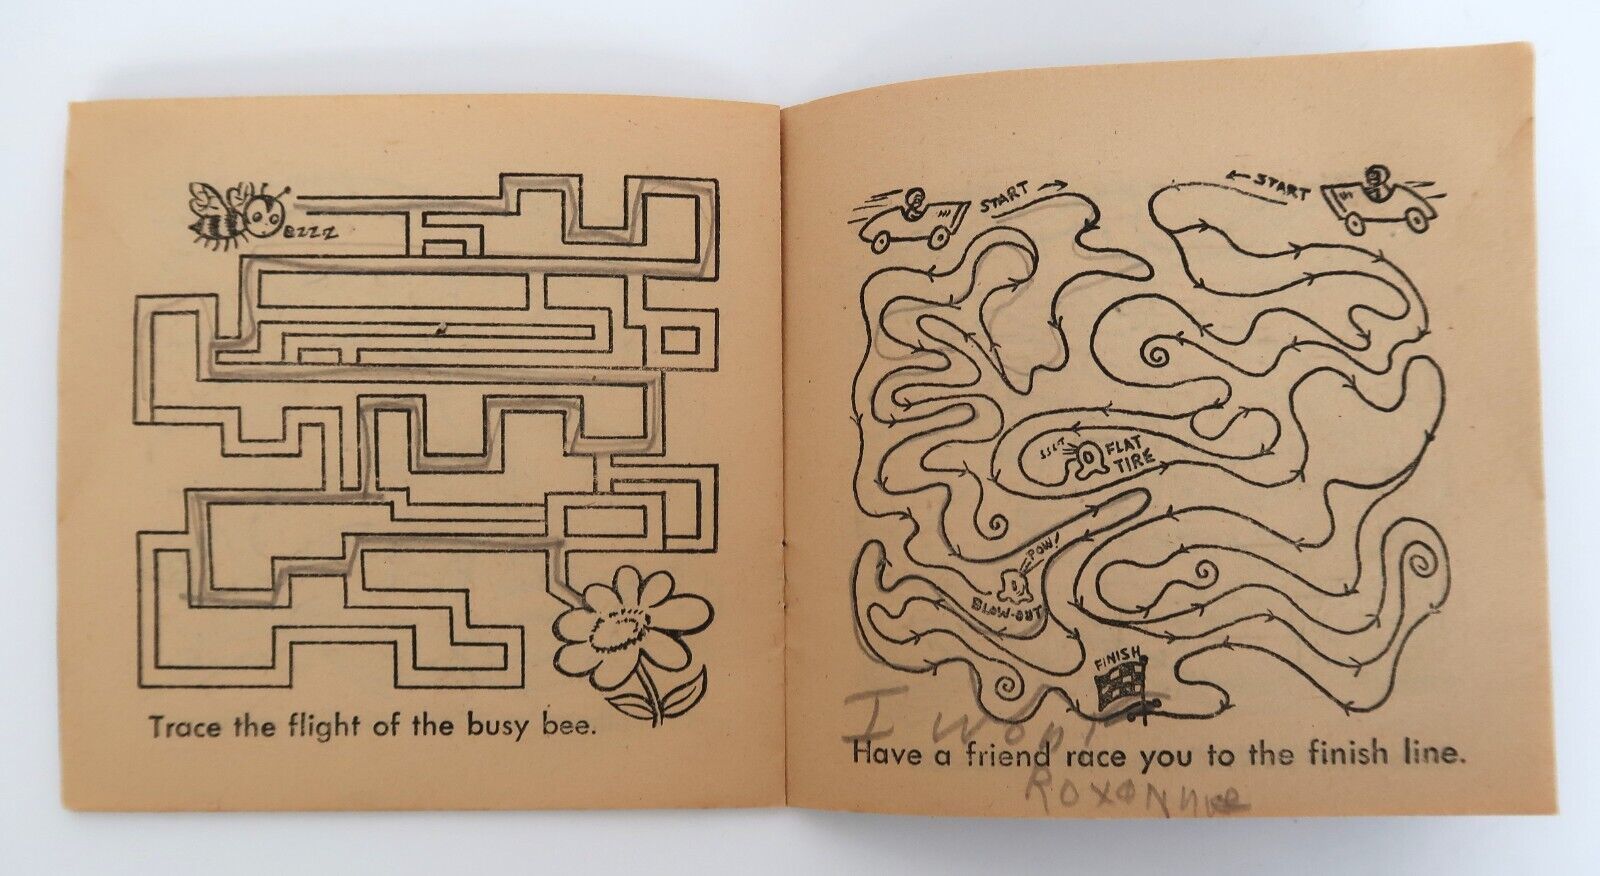 BZZZ
Trace the flight of the busy bee.
START
START
SSS-T
FLAT
TIRE
POW!
BLOW-OUT
FINISH
I won
Have a friend race you to the finish line.